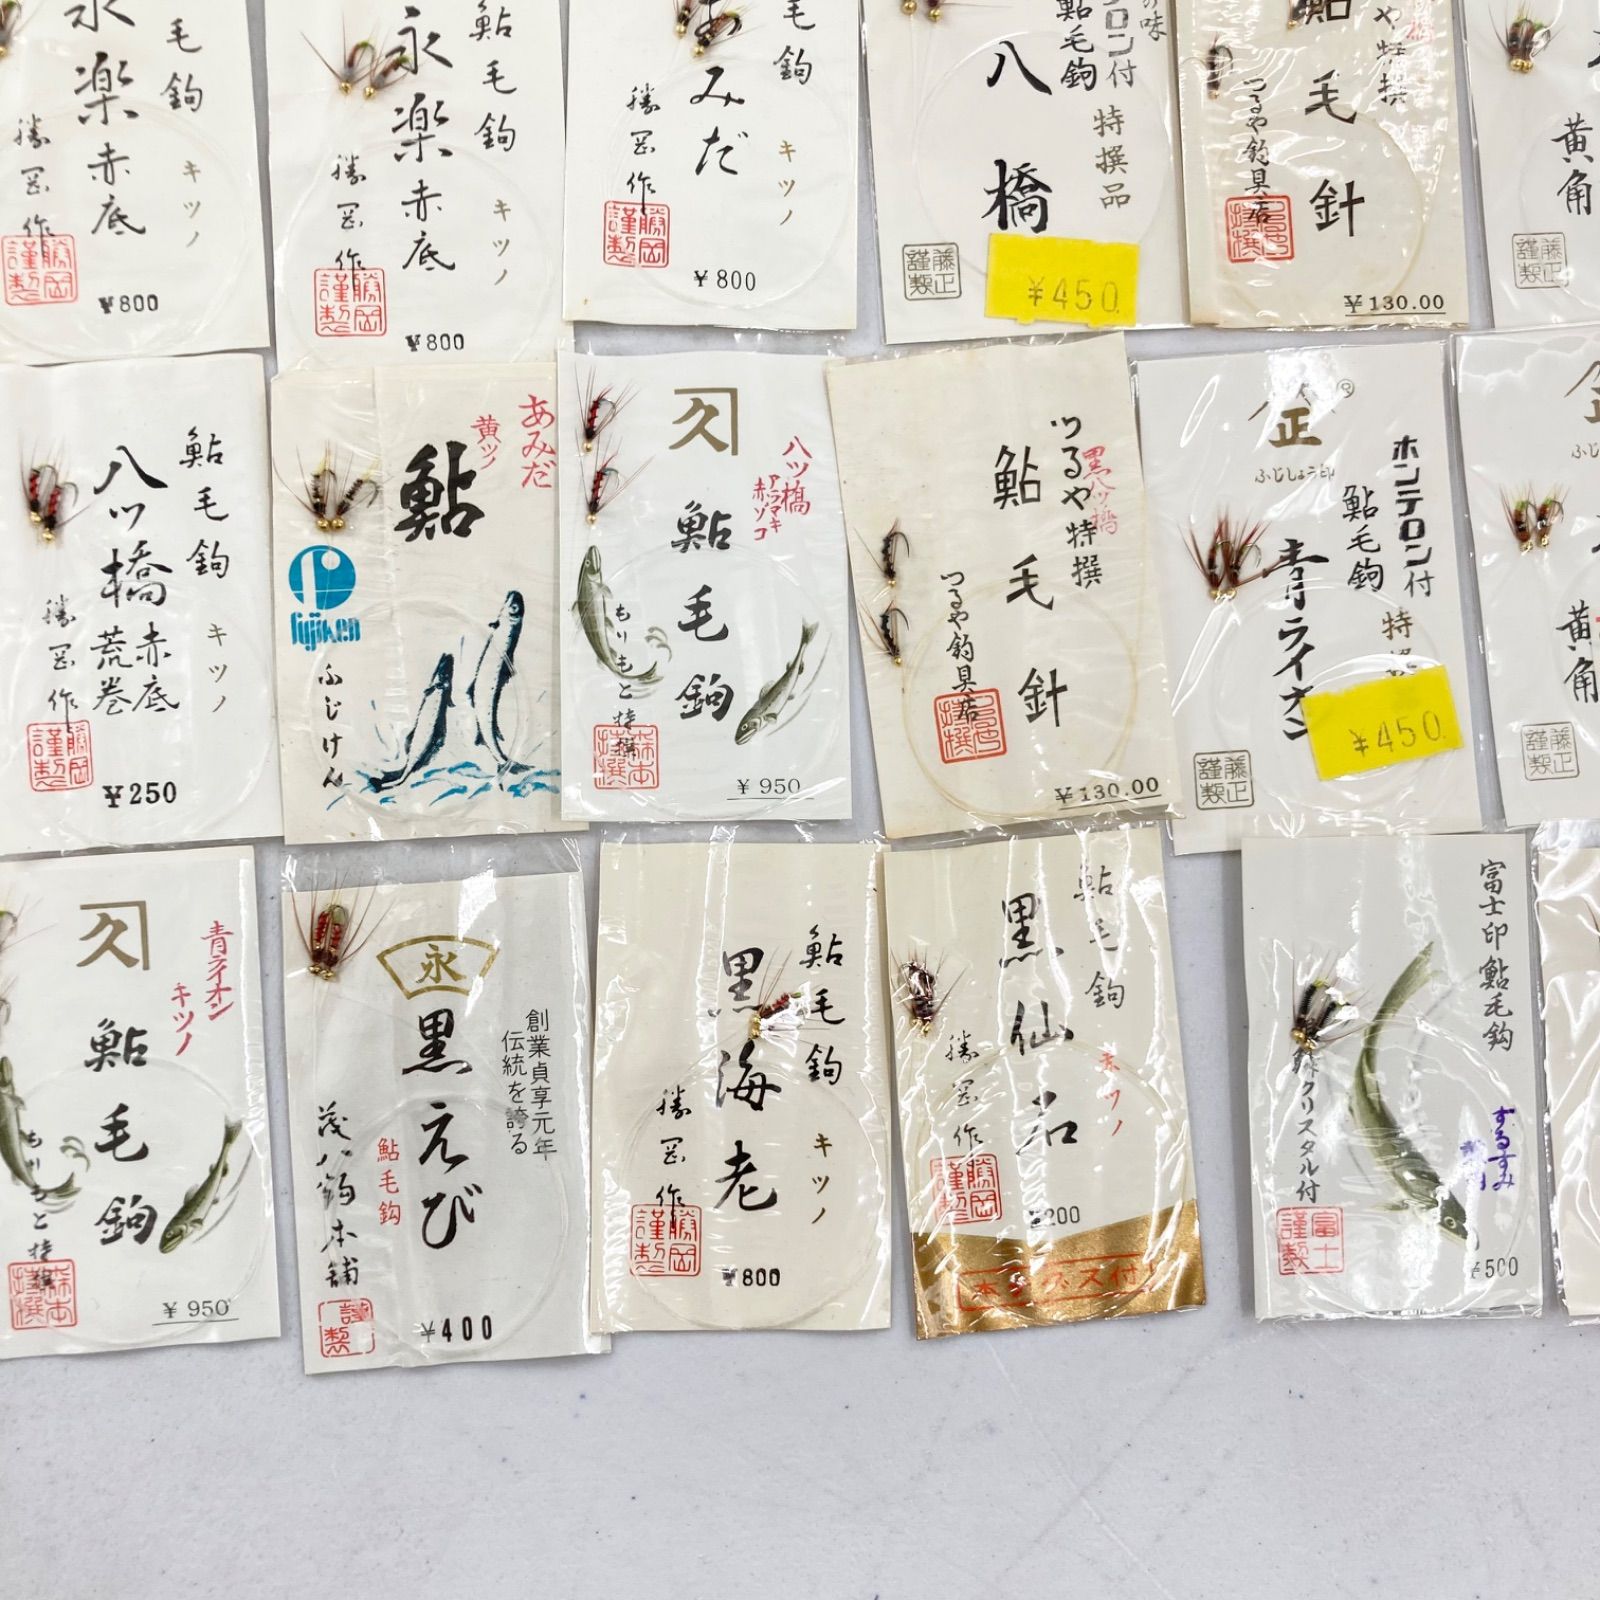 永楽赤底
毛鉤
キツノ
勝岡作
勝岡謹製
¥800
永楽赤底
鮎毛鉤
キツノ
勝岡作
勝岡謹製
¥800
おみだ
毛鉤
キツノ
勝岡作
勝岡謹製
¥800
八橋
鮎毛鉤
ロン付
の味
特撰品
藤正謹製
¥450.
鮎毛針
や特撰
つるや釣具店
¥130.00
黄角
藤正謹製
鮎毛鉤
キツノ
八ツ橋
赤底
荒巻
勝岡作
勝岡謹製
¥250
あみだ
黄ツノ
鮎
fujiken
ふじけん
久
八ツ橋
アラマキ
赤ゾコ
鮎毛鉤
もりもと特撰
森本特撰
¥ 950
つるや特撰
黒八ツ橋
鮎毛針
つるや釣具店
¥130.00
正®
ふじしょう印
ホンテロン付
鮎毛鉤
青ライオン
特撰
藤正謹製
¥450.
黄角
藤正謹製
久
青ライオン
キツノ
鮎毛鉤
もりもと特撰
森本特撰
¥ 950
永
創業貞享元年
伝統を誇る
黒えび
鮎毛鈎
茂八鈎本舗
謹製
¥400
鮎毛鉤
黒海老
キツノ
勝岡作
勝岡謹製
¥800
鮎毛鉤
黒仙石
赤ツノ
勝岡作
勝岡謹製
¥200
本テグス付
富士印鮎毛鈎
クリスタル付
するすみ
富士謹製
¥500